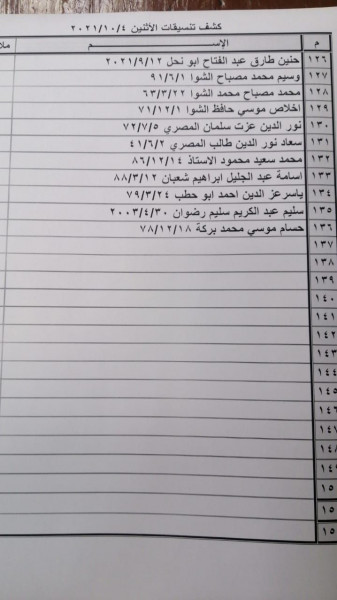 كشف تنسيقات الأثنين ٢٠٢١/١٠/٤
م الإســـــم
١٢٦ حنين طارق عبد الفتاح ابو نحل ٢٠٢١/٩/١٢
١٢٧ وسيم محمد مصباح الشوا ٩١/٦/١
١٢٨ محمد مصباح محمد الشوا ٦٣/٣/٢٢
١٢٩ اخلاص موسي حافظ الشوا ٧١/١٢/١
١٣٠ نور الدين عزت سلمان المصري ٧٢/٧/٥
١٣١ سعاد نور الدين طالب المصري ٤١/٦/٢
١٣٢ محمد سعيد محمود الاستاذ ٨٦/١٢/١٤
١٣٣ اسامة عبد الجليل ابراهيم شعبان ٨٨/٣/١٢
١٣٤ ياسرعز الدين احمد ابو حطب ٧٩/٣/٢٤
١٣٥ سليم عبد الكريم سليم رضوان ٢٠٠٣/٤/٣٠
١٣٦ حسام موسي محمد بركة ٧٨/١٢/١٨
١٣٧
١٣٨
١٣٩
١٤٠
١٤١
١٤٢
١٤٣
١٤٤
١٤٥
١٤٦
١٤٧
١٤٨
١٤٩
١٥
١٥
١٥